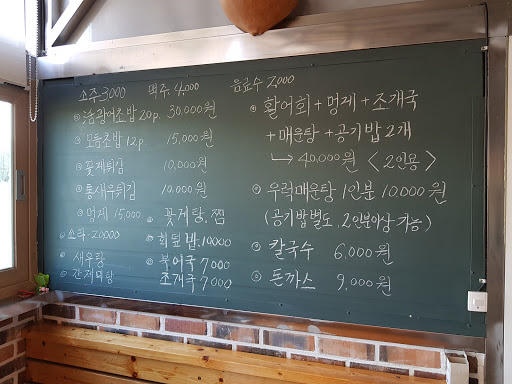 소주 3000 맥주 4,000 음료수 2,000
광어초밥 20p. 30,000원
모듬초밥 12p. 15,000원
꽃게튀김 10,000원
통새우튀김 10,000원
멍게 15,000
소라. 20000
새우탕
꽃게탕.찜
회덮밥. 10000
북어국 7000
조개국 7000
활어회 + 멍게 + 조개국
+ 매운탕 + 공기밥 2개
→ 40,000원 <2인용>
우럭매운탕 1인분 10,000원
(공기밥별도, 2인분이상 가능)
칼국수 6,000원
돈까스 9,000원